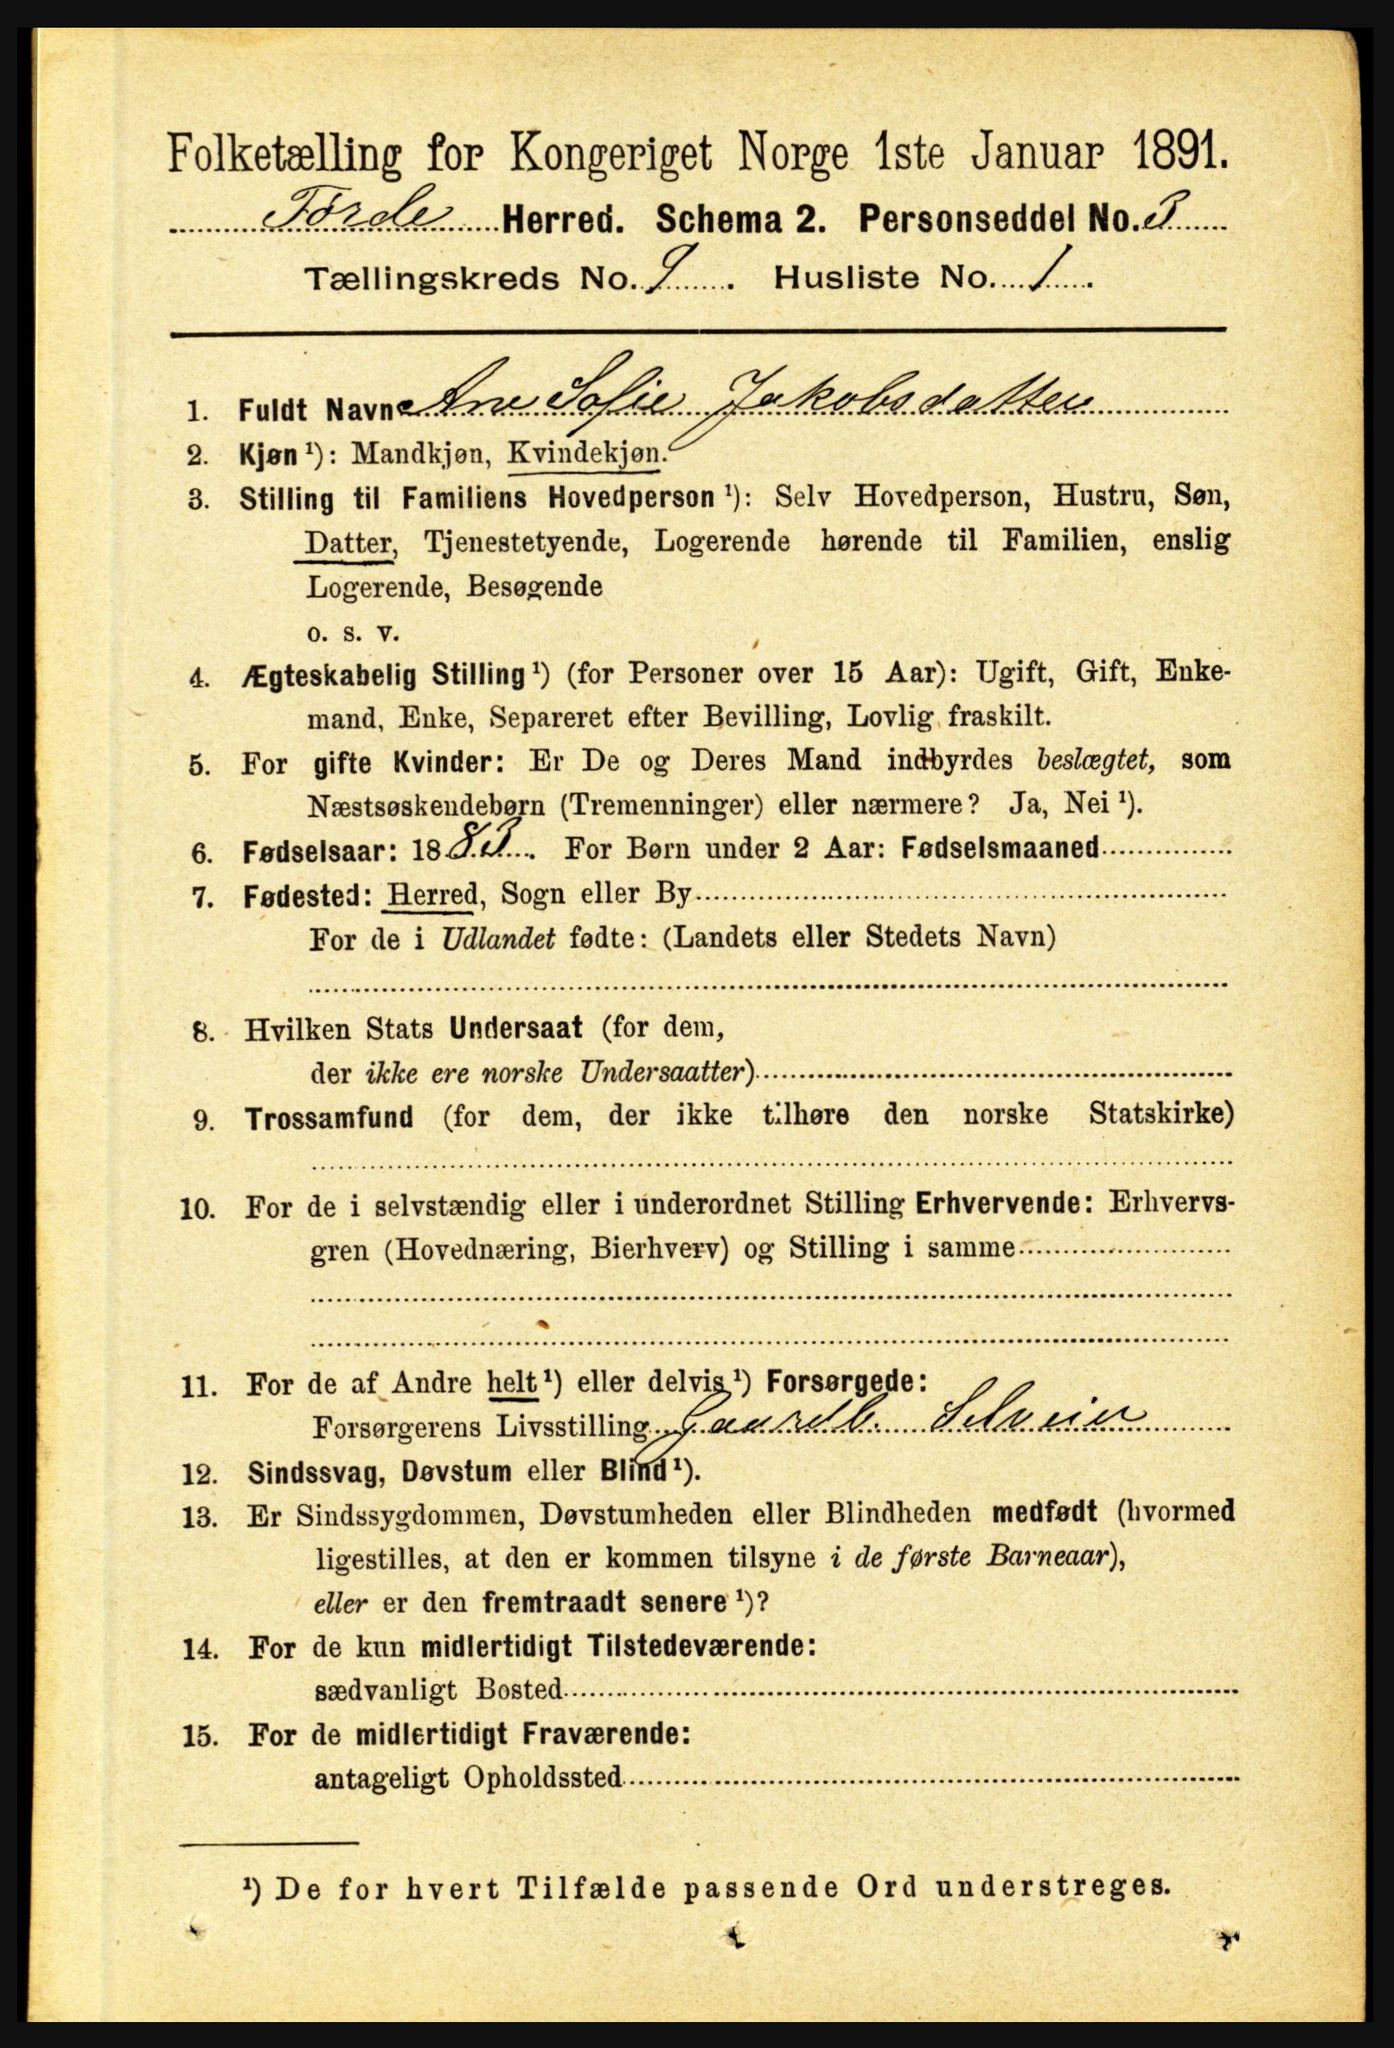 Folketælling for Kongeriget Norge 1ste Januar 1891.
Førde Herred. Schema 2. Personseddel No. 3
Tællingskreds No. 9. Husliste No. 1.
1. Fuldt Navn: Ane Sofie Jakobsdatter
2. Kjøn ¹): Mandkjøn, Kvindekjøn.
3. Stilling til Familiens Hovedperson ¹): Selv Hovedperson, Hustru, Søn,
Datter, Tjenestetyende, Logerende hørende til Familien, enslig
Logerende, Besøgende
o. s. v.
4. Ægteskabelig Stilling ¹) (for Personer over 15 Aar): Ugift, Gift, Enke-
mand, Enke, Separeret efter Bevilling, Lovlig fraskilt.
5. For gifte Kvinder: Er De og Deres Mand indbyrdes beslægtet, som
Næstsøskendebørn (Tremenninger) eller nærmere? Ja, Nei ¹).
6. Fødselsaar: 1883. For Børn under 2 Aar: Fødselsmaaned
7. Fødested: Herred, Sogn eller By
For de i Udlandet fødte: (Landets eller Stedets Navn)
8. Hvilken Stats Undersaat (for dem,
der ikke ere norske Undersaatter)
9. Trossamfund (for dem, der ikke tilhøre den norske Statskirke)
10. For de i selvstændig eller i underordnet Stilling Erhvervende: Erhvervs-
gren (Hovednæring, Bierhverv) og Stilling i samme
11. For de af Andre helt ¹) eller delvis ¹) Forsørgede:
Forsørgerens Livsstilling Gaardb. Selveier
12. Sindssvag, Døvstum eller Blind ¹).
13. Er Sindssygdommen, Døvstumheden eller Blindheden medfødt (hvormed
ligestilles, at den er kommen tilsyne i de første Barneaar),
eller er den fremtraadt senere ¹)?
14. For de kun midlertidigt Tilstedeværende:
sædvanligt Bosted
15. For de midlertidigt Fraværende:
antageligt Opholdssted
¹) De for hvert Tilfælde passende Ord understreges.